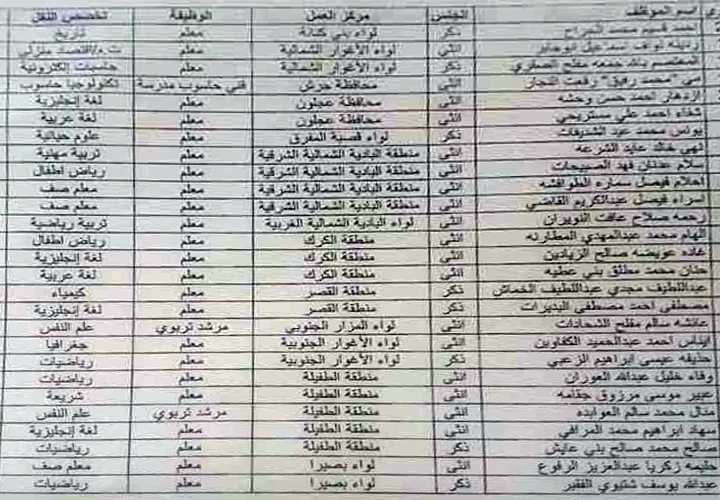 اسم الموظف الجنس مركز العمل الوظيفة تخصص النقل
احمد قسيم محمد الجراح ذكر لواء بني كنانة معلم تاريخ
ردينه نوف اسماعيل ابوجابر انثى لواء الأغوار الشمالية معلم ت.م/اقتصاد منزلي
المعتصم بالله جمعه مفلح الصقري ذكر لواء الأغوار الشمالية معلم حاسبات إلكترونية
مي "محمد رفيق" رفعت النجار انثى محافظة جرش فني حاسوب مدرسة تكنولوجيا حاسوب
ازدهار احمد حسن وحشه انثى محافظة عجلون معلم لغة إنجليزية
شفاء احمد علي مستريحي انثى محافظة عجلون معلم لغة عربية
يونس محمد عبد الشديفات ذكر لواء قصبة المفرق معلم علوم حياتية
نهى خالد عايد الشرعه انثى منطقة البادية الشمالية الشرقية معلم تربية مهنية
سلام عدنان فهد الصبيحات انثى منطقة البادية الشمالية الشرقية معلم رياض اطفال
احلام فيصل سماره الطوافشه انثى منطقة البادية الشمالية الشرقية معلم معلم صف
اسراء فيصل عبدالكريم القاضي انثى منطقة البادية الشمالية الشرقية معلم معلم صف
رحمه صلاح عافت النويران انثى لواء البادية الشمالية الغربية معلم تربية رياضية
الهام محمد عبدالمهدي المطارنه انثى منطقة الكرك معلم رياض اطفال
غاده عويضه صالح الزيادين انثى منطقة الكرك معلم لغة إنجليزية
حنان محمد مطلق بني عطيه انثى منطقة الكرك معلم لغة عربية
عبداللطيف مجدي عبداللطيف الخماش ذكر منطقة القصر معلم كيمياء
مصطفى احمد مصطفى البديرات ذكر منطقة القصر معلم لغة إنجليزية
عائشه سالم مفلح الشحادات انثى لواء المزار الجنوبي مرشد تربوي علم النفس
ايناس احمد عبدالحميد الكفاوين انثى لواء الأغوار الجنوبية معلم جغرافيا
حذيفه عيسى ابراهيم الزعبي ذكر لواء الأغوار الجنوبية معلم رياضيات
وفاء خليل عبدالله العوران انثى منطقة الطفيلة معلم رياضيات
عبير موسى مرزوق جقامه انثى منطقة الطفيلة معلم شريعة
منال محمد سالم العوابده انثى منطقة الطفيلة مرشد تربوي علم النفس
سهاد ابراهيم محمد المرافي انثى منطقة الطفيلة معلم لغة إنجليزية
صالح محمد صالح بني عايش ذكر منطقة الطفيلة معلم رياضيات
حليمه زكريا عبدالعزيز الرفوع انثى لواء بصيرا معلم معلم صف
عبدالله يوسف شتيوي الفقير ذكر لواء بصيرا معلم رياضيات